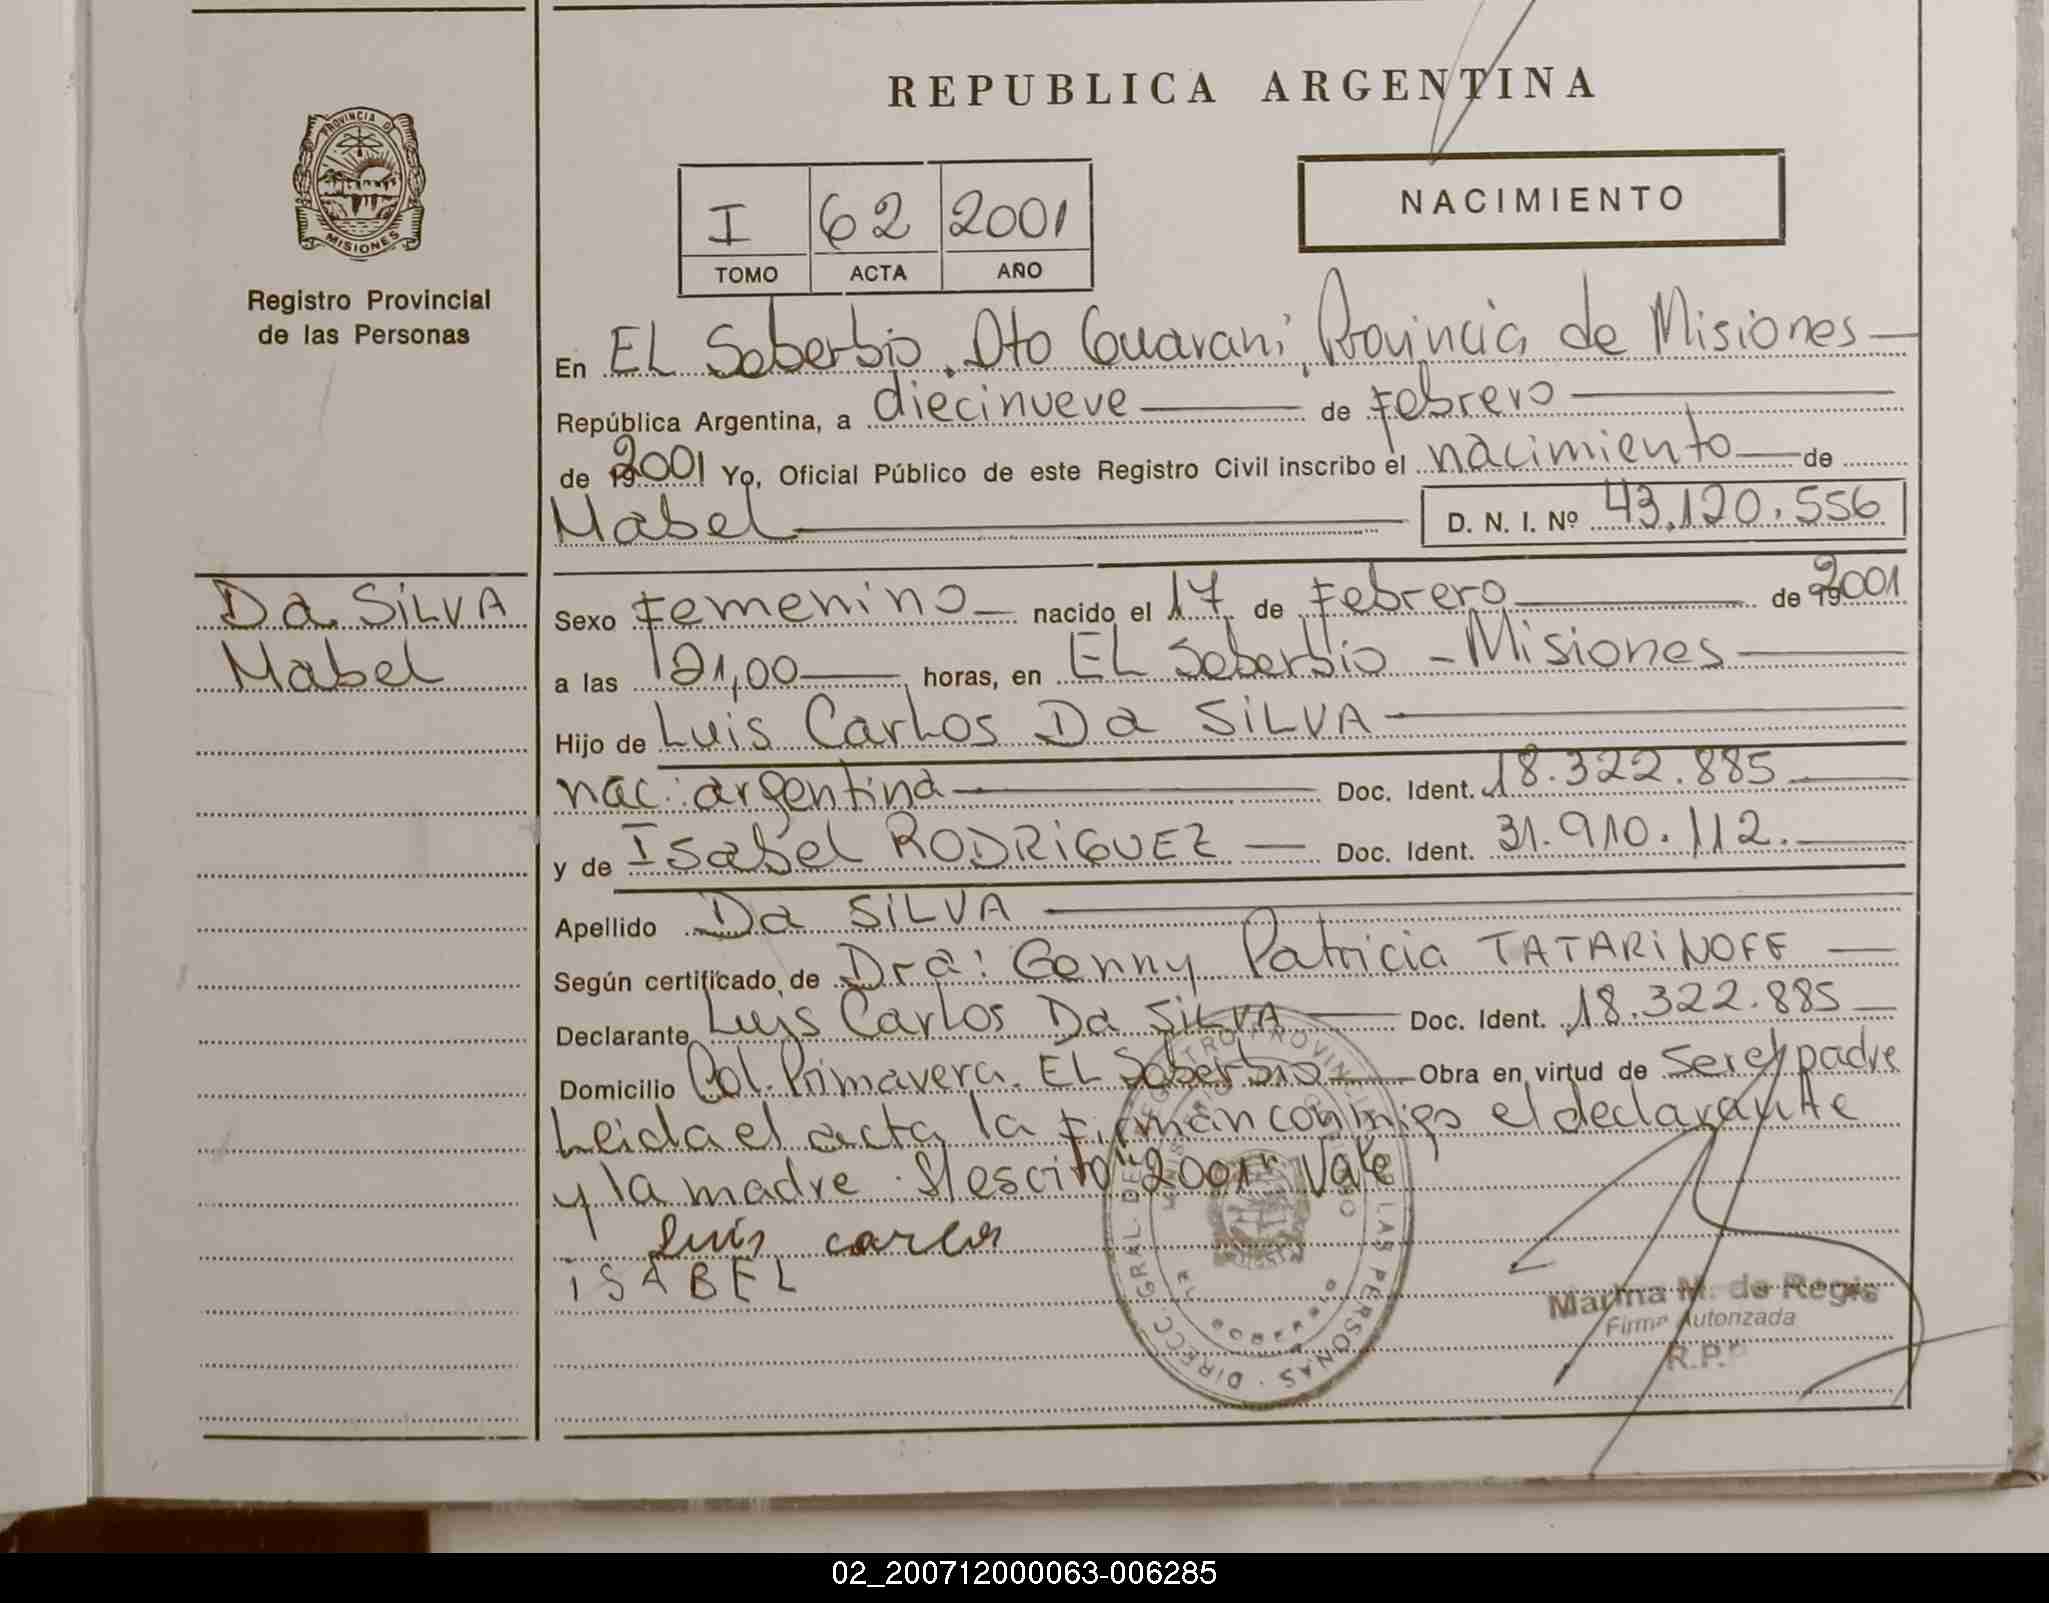 REPUBLICA ARGENTINA
PROVINCIA DE
MISIONES
Registro Provincial
de las Personas
I 62 2001
TOMO ACTA AÑO
NACIMIENTO
En EL Soberbio, Dto Guaraní, Provincia de Misiones
República Argentina, a diecinueve de Febrero
de 2001 Yo, Oficial Público de este Registro Civil inscribo el nacimiento de
Mabel D. N. I. Nº 43.120.556
Da SiLVA
Mabel
Sexo Femenino nacido el 17 de Febrero de 2001
a las 21,00 horas, en EL Soberbio - Misiones
Hijo de Luis CarLos Da SiLVA
nac: argentina Doc. Ident. 18.322.885
y de Isabel RODRiGUEZ Doc. Ident. 31.910.112.
Apellido Da SiLVA
Según certificado de Dra: Genny Patricia TATARiNOFF
Declarante Luis CarLos Da SiLVA Doc. Ident. 18.322.885
Domicilio Col. Primavera. EL Soberbio Obra en virtud de ser el padre
Leida el acta la Firman conmigo el declarante
y la madre. S/escito "2001" Vale
Luis carlos
iSABEL
DIRECC. GRAL. DEL REGISTRO PROVINCIAL DE LAS PERSONAS
Marina M. de Regis
Firma Autorizada
R.P.P
02_200712000063-006285